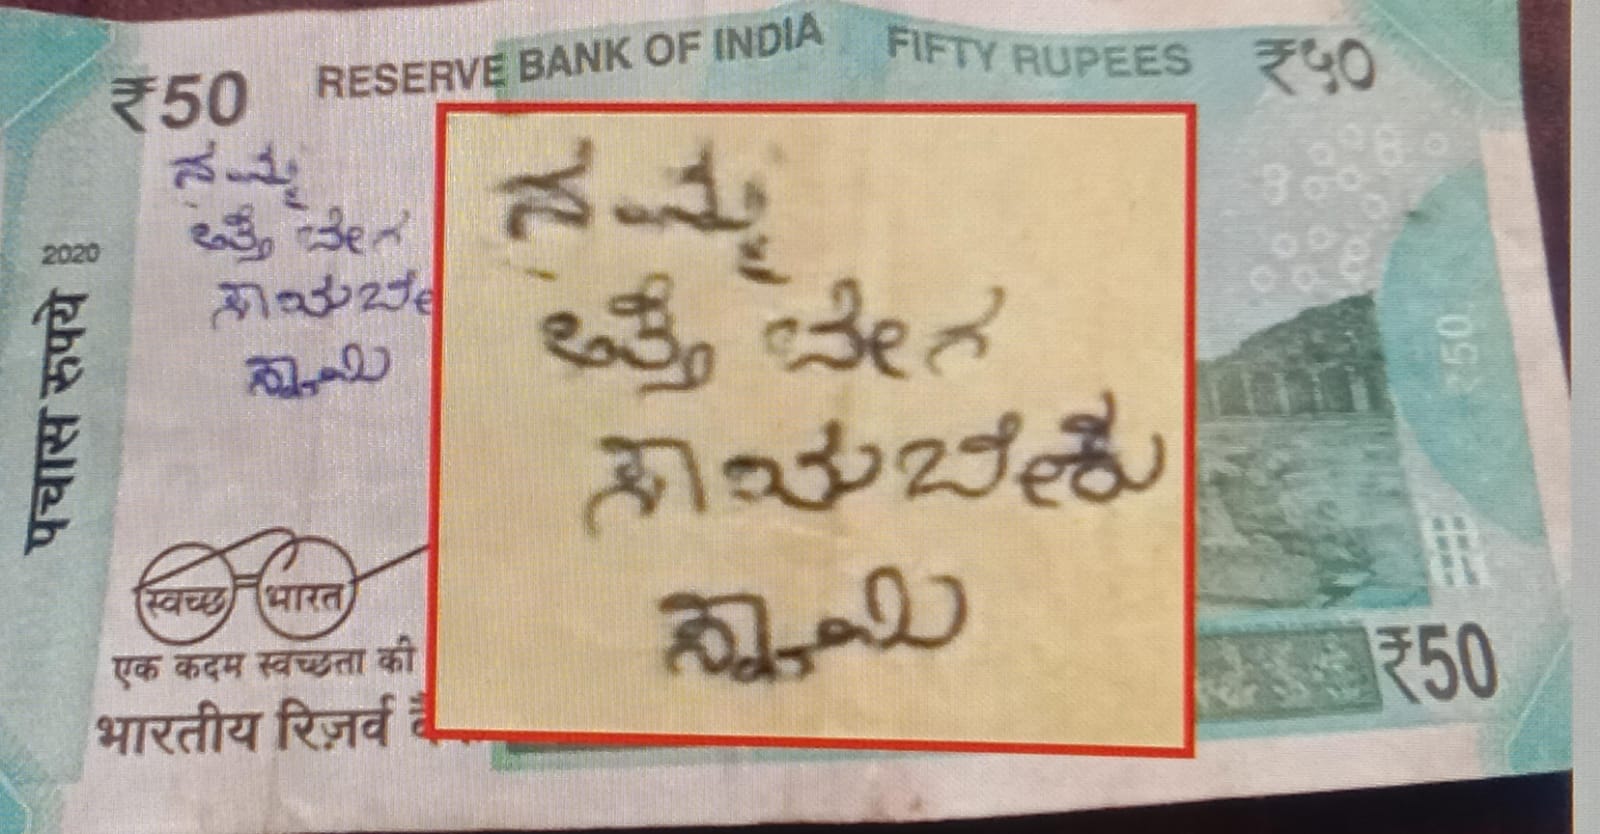 RESERVE BANK OF INDIA FIFTY RUPEES
₹50
₹५०
ನಮ್ಮ
ಅತ್ತೆ ಬೇಗ
ಸಾಯಬೇ
ಸ್ವಾಮಿ
ನಮ್ಮ
ಅತ್ತೆ ಬೇಗ
ಸಾಯಬೇಕು
ಸ್ವಾಮಿ
2020
पचास रुपये
स्वच्छ भारत
एक कदम स्वच्छता की
भारतीय रिज़र्व
₹50
₹50